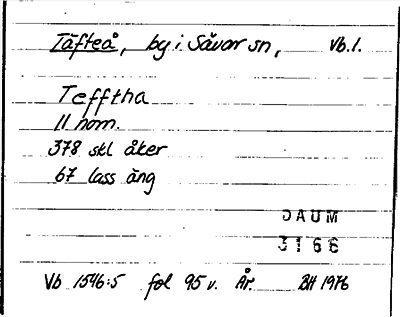 Täfteå, by i Sävar sn, Vb.l.
Tefftha
11 nom.
378 skl åker
67 lass äng
DAUM
3166
Vb 1546:5 fol 95 v. År. BH 1976